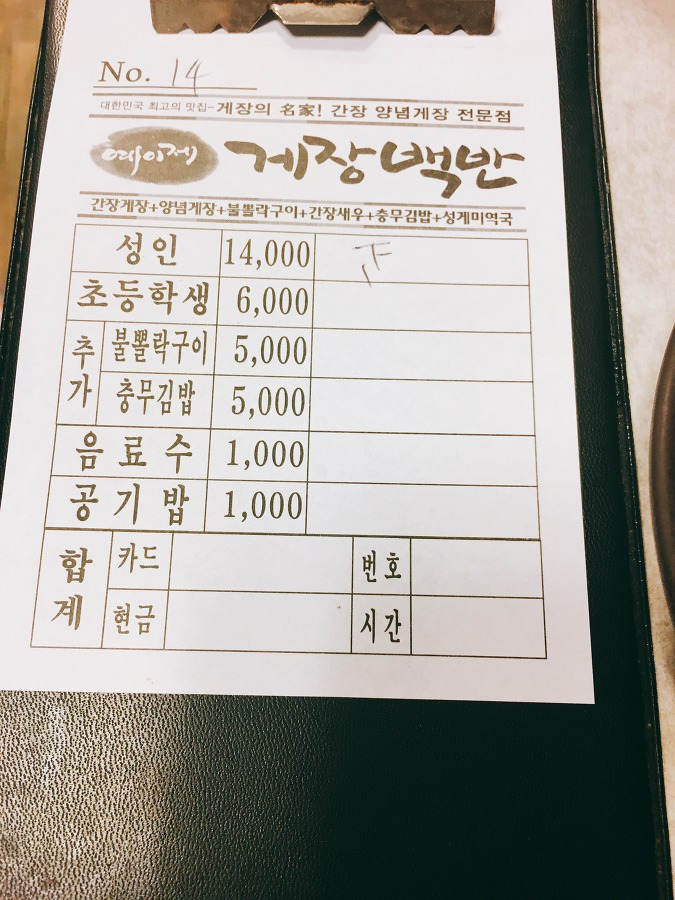 No. 14
대한민국 최고의 맛집-게장의 名家! 간장 양념게장 전문점
여이제 게장백반
간장게장+양념게장+불뽈락구이+간장새우+충무김밥+성게미역국
성인 14,000
초등학생 6,000
추가 불뽈락구이 5,000
충무김밥 5,000
음료수 1,000
공기밥 1,000
합계 카드 번호
현금 시간